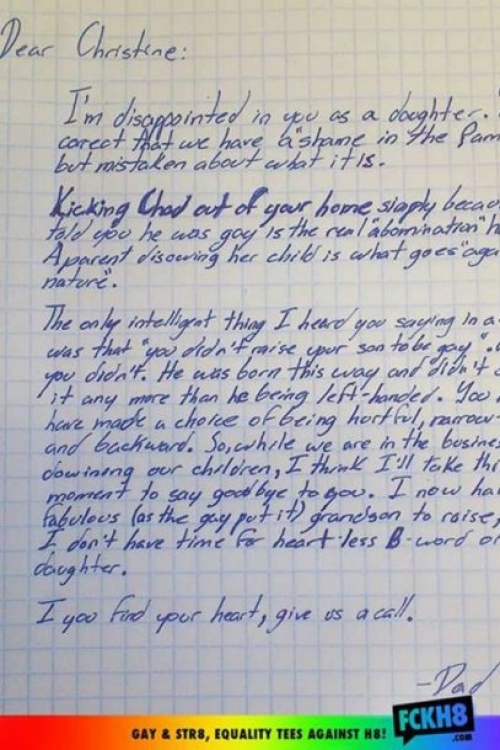 Dear Christine:
I'm disappointed in you as a daughter.
corect that we have a "shame in the fam
but mistaken about what it is.
Kicking Chad out of your home simply becau
told you he was gay is the real "abomination" h
A parent disowing her child is what goes "aga
nature".
The only intelligent thing I heard you saying in a
was that "you didn't raise your son to be gay".
you didn't. He was born this way and didn't
it any more than he being left-handed. You
have made a choice of being hurtful, narrow-
and backward. So, while we are in the busines
dowining our children, I think I'll take thi
moment to say goodbye to you. I now ha
fabulous (as the gay put it) grandson to raise,
I don't have time for heart-less B-word of
daughter.
I you find your heart, give us a call.
-Dad
GAY & STR8, EQUALITY TEES AGAINST H8!
FCKH8
.COM